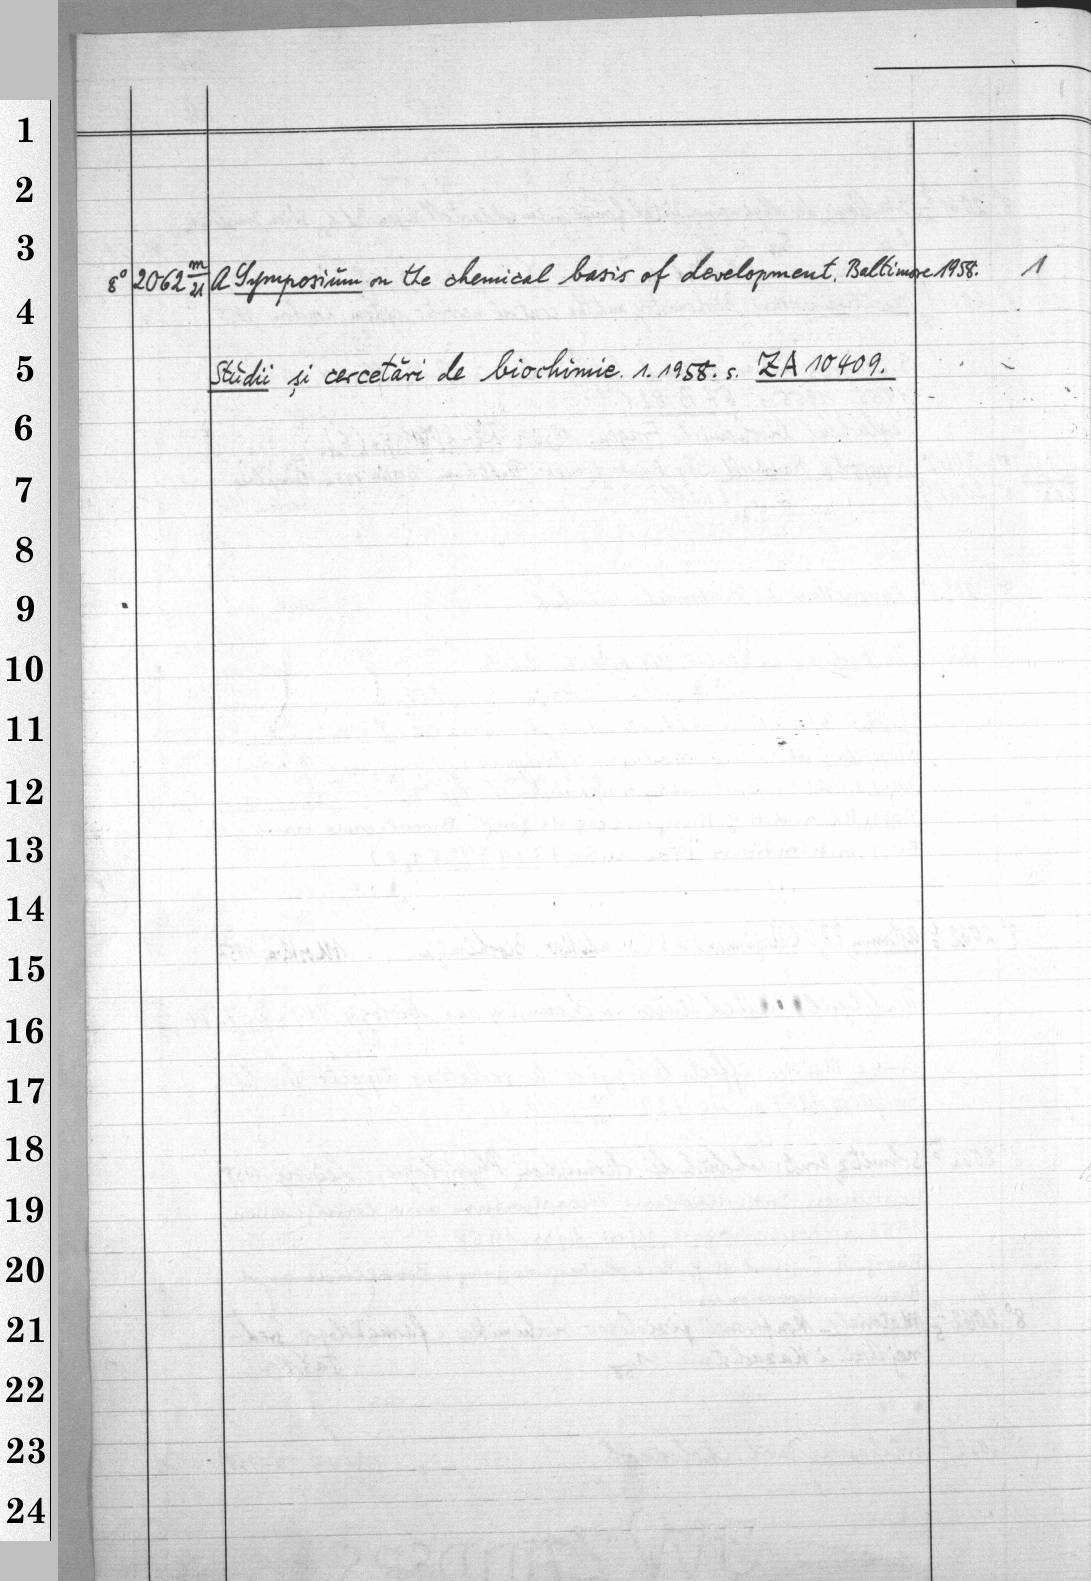 1
2
3
8° 2062 m/21 A Symposium on the chemical basis of development. Baltimore 1958. 1
4
5
Studii și cercetări de biochimie. 1. 1958. s. ZA 10409.
6
7
8
9
10
11
12
13
14
15
16
17
18
19
20
21
22
23
24